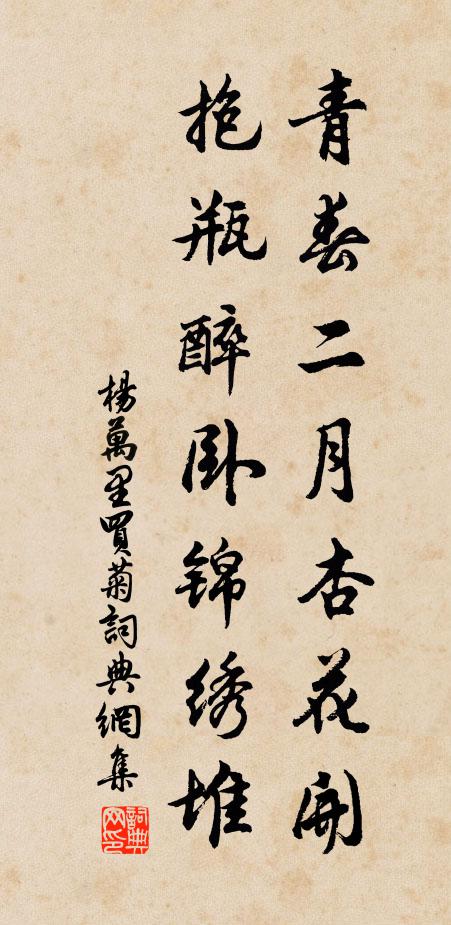 青春二月杏花開
抱瓶醉卧锦绣堆
楊萬里買菊詞典網集
詞典網印